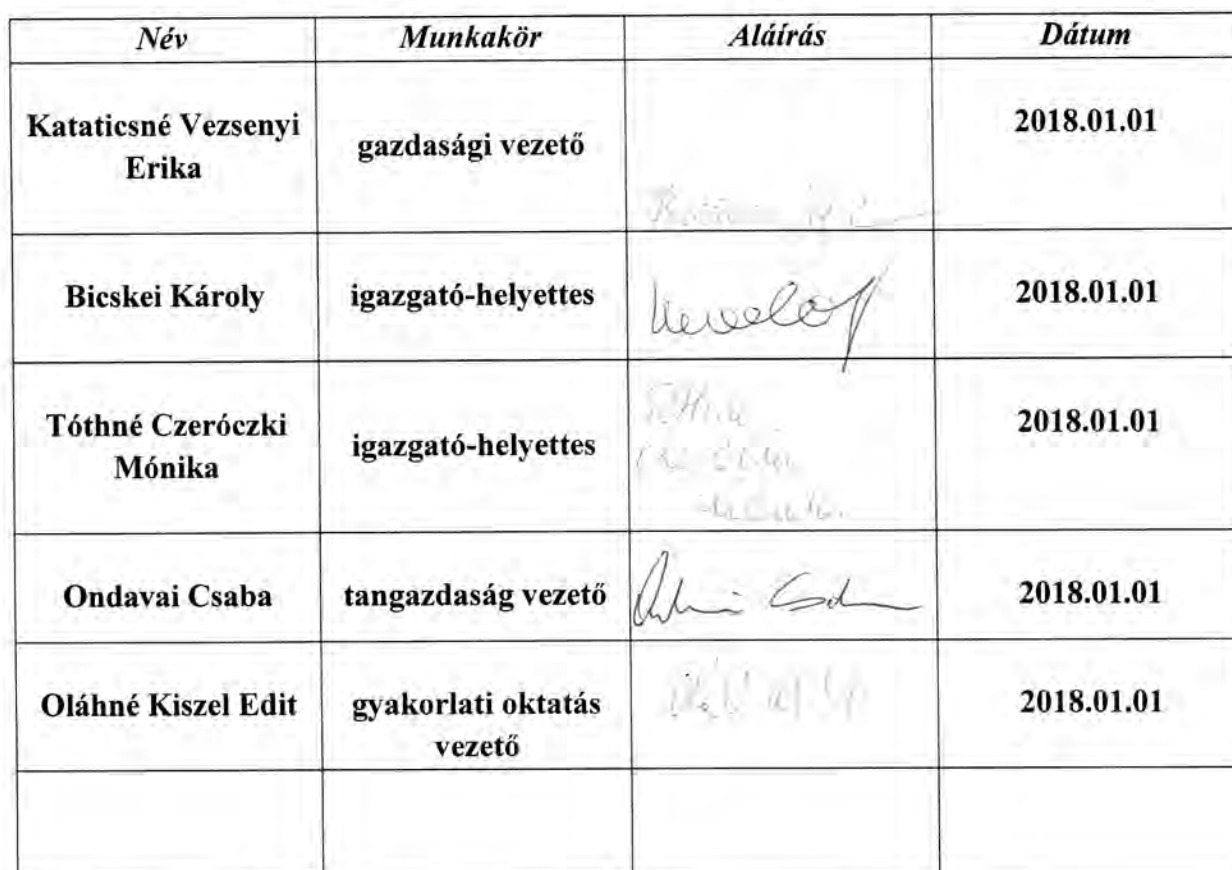 Név Munkakör Aláírás Dátum
Kataticsné Vezsenyi
Erika
gazdasági vezető
2018.01.01
Bicskei Károly igazgató-helyettes 2018.01.01
Tóthné Czeróczki
Mónika
igazgató-helyettes
2018.01.01
Ondavai Csaba tangazdaság vezető 2018.01.01
Oláhné Kiszel Edit gyakorlati oktatás
vezető
2018.01.01